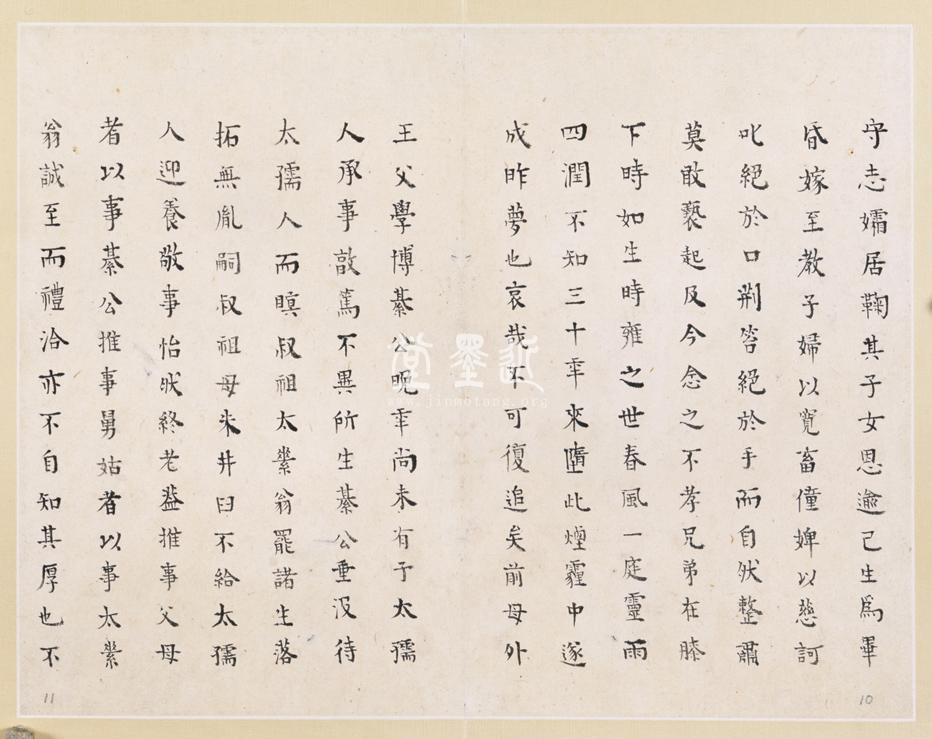 守志孀居鞠其子女恩逾己生爲畢
昏嫁至教子婦以寬畜僮婢以慈訶
叱絕於口荆笞絕於手而自肰整肅
莫敢褻起及今念之不孝兄弟在膝
下時如生時雍之世春風一庭靈雨
四潤不知三十年來墮此煙霾中遂
成昨夢也哀哉不可復追矣前母外
王父學博綦公晩年尚未有子太孺
人承事敦篤不異所生綦公垂沒待
太孺人而瞑叔祖太素翁罷諸生落
拓無胤嗣叔祖母朱井臼不給太孺
人迎養敬事怡肰終老葢推事父母
者以事綦公推事舅姑者以事太素
翁誠至而禮洽亦不自知其厚也不
近墨堂
www.jinmotang.org
10
11